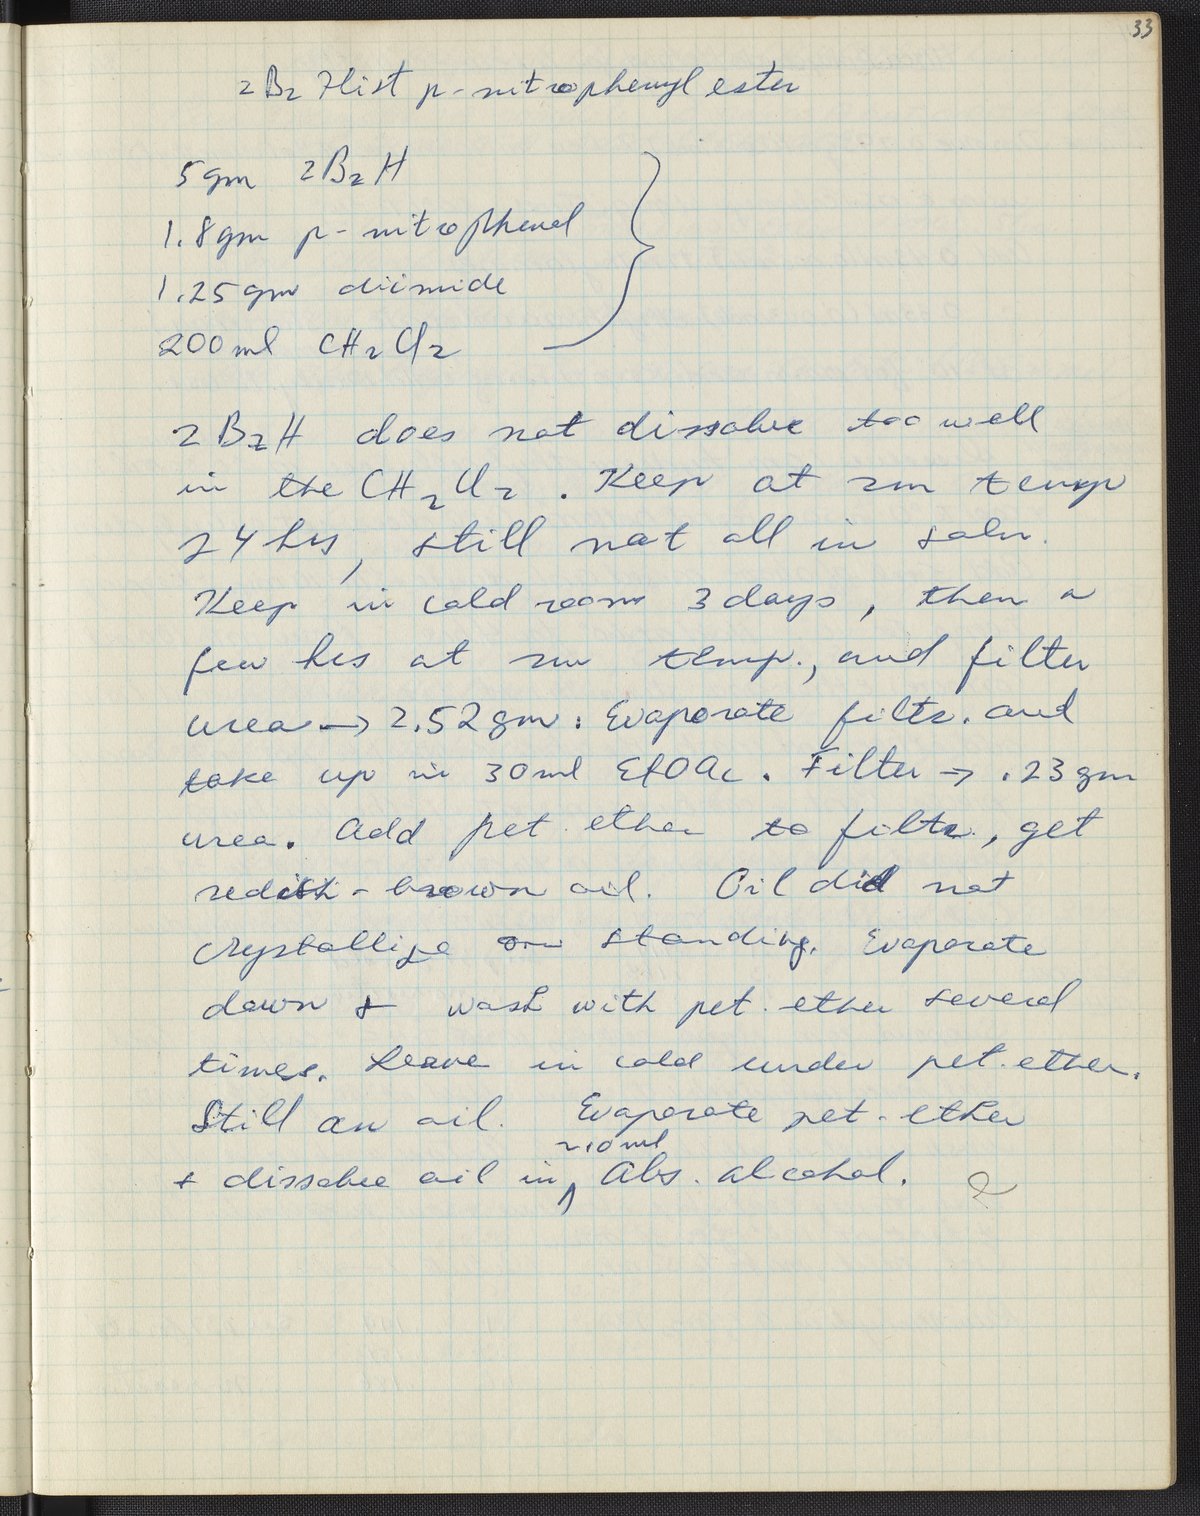 33
2B2 Hist p-nitrophenyl ester
5gm 2B2H
1.8gm p-nitrophenol
1.25gm diimide
200ml CH2Cl2
2B2H does not dissolve too well
in the CH2Cl2. Keep at rm temp
24 hrs, still not all in soln.
Keep in cold room 3 days, then a
few hrs at rm temp., and filter
urea → 2.52gm. Evaporate filtr. and
take up in 30ml EtOAc. Filter → .23gm
urea. Add pet. ether to filtr., get
redish-brown oil. Oil did not
crystallize on standing. Evaporate
down + wash with pet. ether several
times. Leave in cold under pet. ether.
Still an oil. Evaporate pet. ether
~10ml
+ dissolve oil in Abs. alcohol.